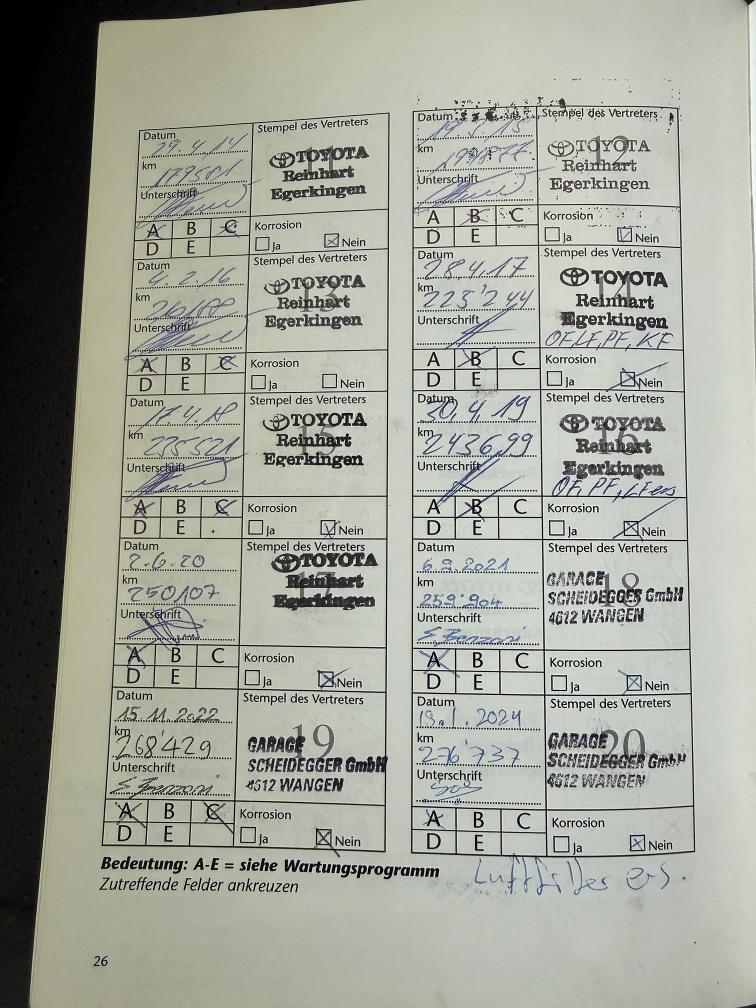 Datum
29.4.14
km
179581
Unterschrift
Stempel des Vertreters
11
TOYOTA
Reinhart
Egerkingen
A B C
D E
Korrosion
Ja Nein
Datum
km
Unterschrift
Stempel des Vertreters
12
TOYOTA
Reinhart
Egerkingen
A B C
D E
Korrosion
Ja Nein
Datum
4.2.16
km
Unterschrift
Stempel des Vertreters
13
TOYOTA
Reinhart
Egerkingen
A B C
D E
Korrosion
Ja Nein
Datum
28.4.17
km
225'244
Unterschrift
Stempel des Vertreters
14
TOYOTA
Reinhart
Egerkingen
OF, LF, PF, KF
A B C
D E
Korrosion
Ja Nein
Datum
17.4.18
km
235521
Unterschrift
Stempel des Vertreters
15
TOYOTA
Reinhart
Egerkingen
A B C
D E
Korrosion
Ja Nein
Datum
30.4.19
km
243699
Unterschrift
Stempel des Vertreters
16
TOYOTA
Reinhart
Egerkingen
OF, PF, LF ers
A B C
D E
Korrosion
Ja Nein
Datum
2.6.20
km
250107
Unterschrift
Stempel des Vertreters
17
TOYOTA
Reinhart
Egerkingen
A B C
D E
Korrosion
Ja Nein
Datum
6.9.2021
km
259'904
Unterschrift
Stempel des Vertreters
18
GARAGE
SCHEIDEGGER GmbH
4612 WANGEN
A B C
D E
Korrosion
Ja Nein
Datum
15.11.2022
km
268'429
Unterschrift
Stempel des Vertreters
19
GARAGE
SCHEIDEGGER GmbH
4612 WANGEN
A B C
D E
Korrosion
Ja Nein
Datum
19.1.2024
km
276'737
Unterschrift
Stempel des Vertreters
20
GARAGE
SCHEIDEGGER GmbH
4612 WANGEN
A B C
D E
Korrosion
Ja Nein
Bedeutung: A-E = siehe Wartungsprogramm
Zutreffende Felder ankreuzen
Luftfilter ers.
26